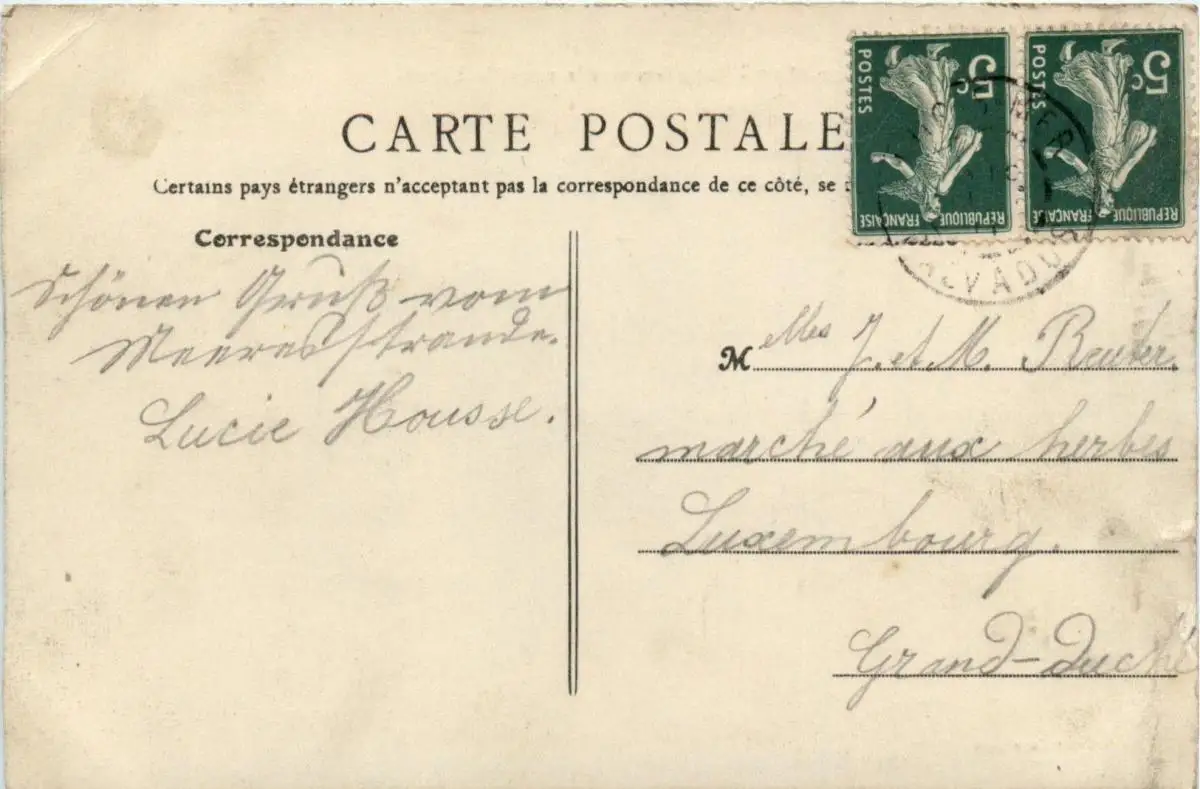 CARTE POSTALE
Certains pays étrangers n'acceptant pas la correspondance de ce côté, se
Correspondance
Schönen Gruß vom
Meeresstrande.
Lucie Housse.
5c
POSTES
REPUBLIQUE FRANÇAISE
5c
POSTES
REPUBLIQUE FRANÇAISE
CALVADOS
M elles J. et M. Reuter.
marché aux herbes
Luxembourg.
Grand-Duché